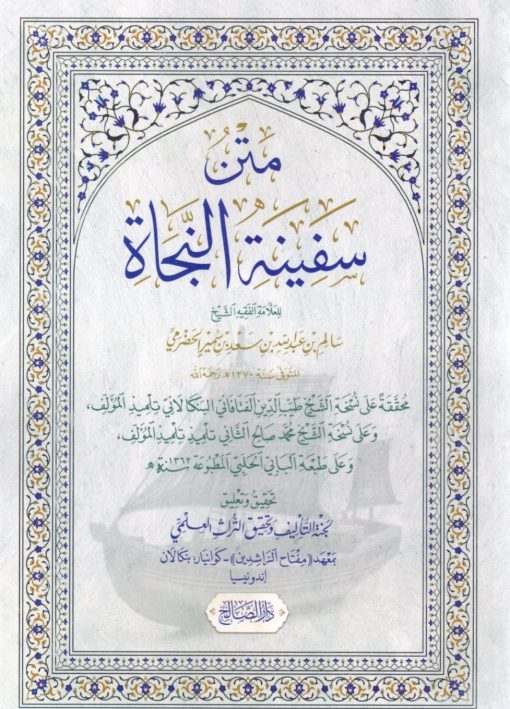 متن
سفينة النجاة
للعلامة الفقيه الشيخ
سالم بن عبد الله بن سعد بن سمير الحضرمي
المتوفى سنة ١٢٧٠ هـ رحمه الله
محققة على نسخة الشيخ طيب الدين الفنافاني البنكالاني تلميذ المؤلف،
وعلى نسخة الشيخ محمد صالح الثاني تلميذ تلميذ المؤلف،
وعلى طبعة البابي الحلبي المطبوعة سنة ١٣٦٢ هـ
تحقيق وتعليق
لجنة التأليف وتحقيق التراث العلمي
بمعهد «مفتاح الراشدين» - كوانيار بنكالان
إندونيسيا
دار الصالح